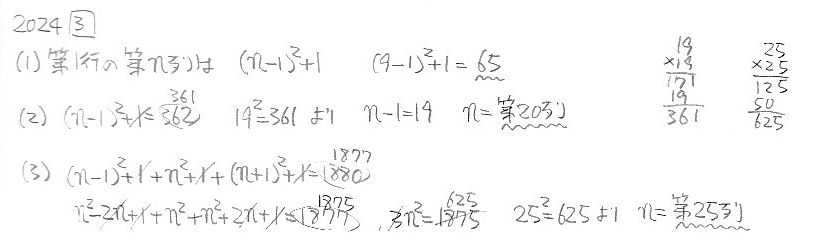 2024 3
(1) 第1行の第n列は (n-1)²+1 (9-1)²+1=65
(2) (n-1)²+1=362 361 19²=361 より n-1=19 n=第20列
(3) (n-1)²+1+n²+1+(n+1)²+1=1880 1877
n²-2n+1+n²+n²+2n+1=1877 1875 3n²=1875 625 25²=625より n=第25列
19
×19
171
19
361
25
×25
125
50
625